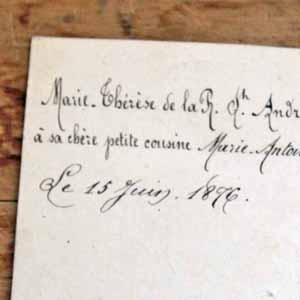 Marie-Thérèse de la R. St. Andr
à sa chère petite cousine Marie-Antoi
Le 15 Juin. 1876.